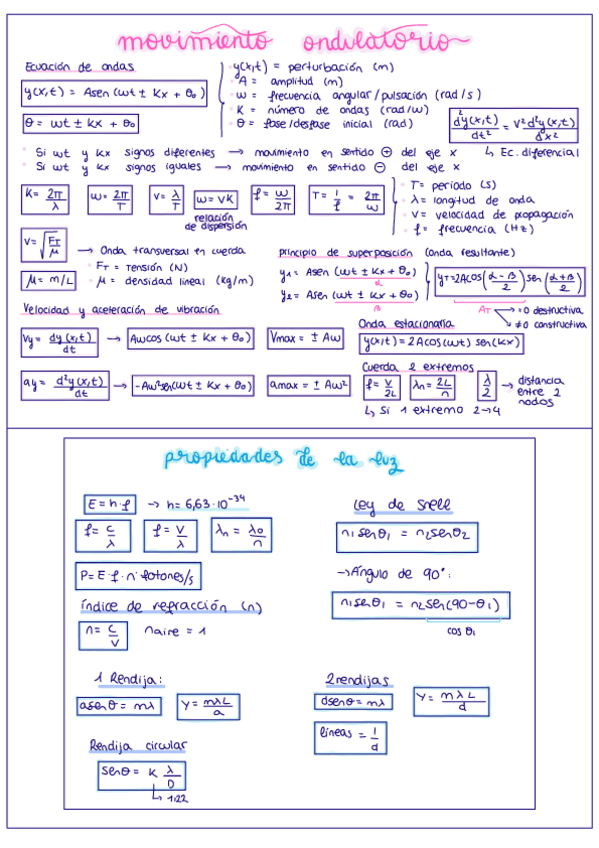 movimiento ondulatorio
Ecuación de ondas
y(x,t) = Asen (ωt ± Kx + θ₀)
θ = ωt ± Kx + θ₀
y(x,t) = perturbación (m)
A = amplitud (m)
ω = frecuencia angular/pulsación (rad/s)
K = número de ondas (rad/w)
θ = fase/desfase inicial (rad)
d²y(x,t)/dt² = v² d²y(x,t)/dx²
↳ Ec. diferencial
Si ωt y Kx signos diferentes → movimiento en sentido ⊕ del eje x
Si ωt y Kx signos iguales → movimiento en sentido ⊖ del eje x
K = 2π/λ
ω = 2π/T
v = λ/T
ω = vK
relación de dispersión
f = ω/2π
T = 1/f = 2π/ω
T = período (s)
λ = longitud de onda
v = velocidad de propagación
f = frecuencia (Hz)
v = √(F_T/μ) → Onda transversal en cuerda
F_T = tensión (N)
μ = m/L
μ = densidad lineal (kg/m)
principio de superposición (onda resultante)
y₁ = Asen (ωt ± Kx + θ₀)
α
y₂ = Asen (ωt ± Kx + θ₀)
β
y_T = 2Acos(α-β/2) sen(α+β/2)
A_T → =0 destructiva
≠0 constructiva
Velocidad y aceleración de vibración
vy = dy(x,t)/dt → Aωcos (ωt ± Kx + θ₀)
Vmax = ± Aω
ay = d²y(x,t)/dt → -Aω²sen(ωt ± Kx + θ₀)
amax = ± Aω²
Onda estacionaria
y(x,t) = 2Acos(ωt) sen(kx)
Cuerda 2 extremos
f = v/2L
λn = 2L/n
λ/2 → distancia entre 2 nodos
↳ Si 1 extremo 2→4
propiedades de la luz
E = h·f → h = 6,63·10⁻³⁴
f = c/λ
f = v/λ
λn = λ₀/n
P = E·f·n° fotones/s
índice de refracción (n)
n = c/v
naire = 1
Ley de snell
n₁senθ₁ = n₂senθ₂
→ Ángulo de 90°:
n₁senθ₁ = n₂sen(90-θ₁)
cos θ₁
1 Rendija:
asenθ = mλ
y = mλL/a
2 rendijas
dsenθ = mλ
y = mλL/d
líneas = 1/d
Rendija circular
senθ = K λ/D
↳ 1,22